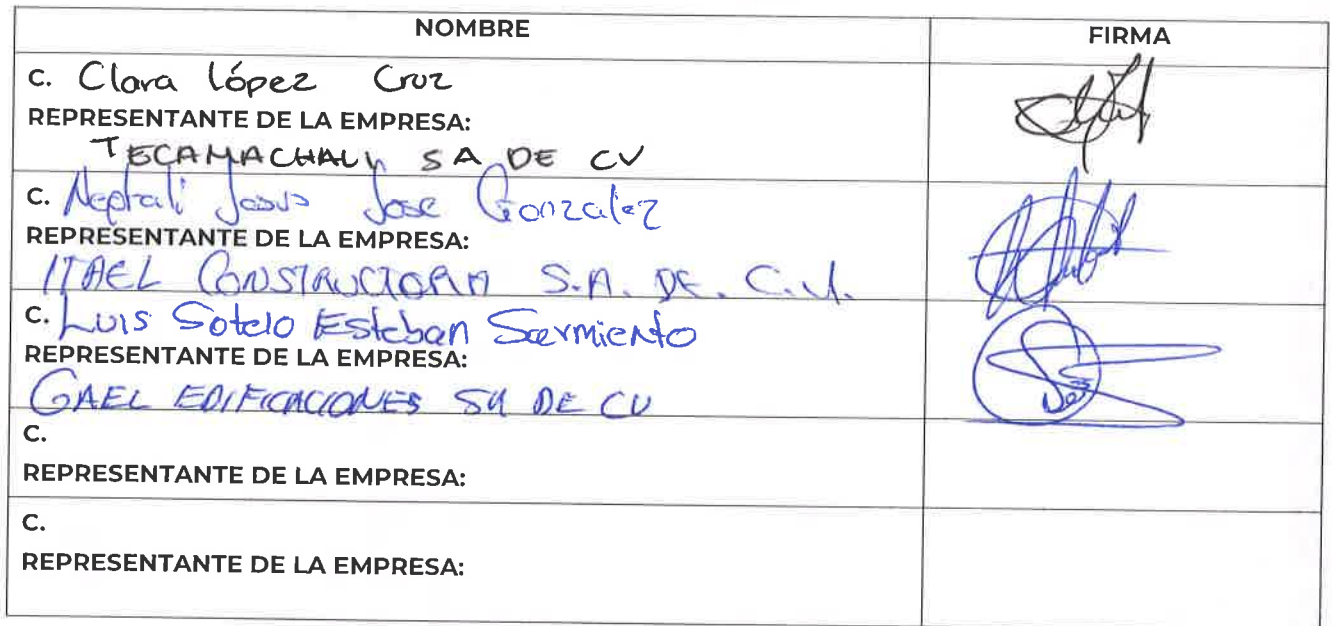 NOMBRE FIRMA
C. Clara López Cruz
REPRESENTANTE DE LA EMPRESA:
TECAMACHALI SA DE CV
C. Neptali Jesus Jose Gonzalez
REPRESENTANTE DE LA EMPRESA:
ITAEL CONSTRUCTORA S.A. DE. C.V.
C. Luis Sotelo Esteban Sarmiento
REPRESENTANTE DE LA EMPRESA:
GAEL EDIFICACIONES SA DE CV
C.
REPRESENTANTE DE LA EMPRESA:
C.
REPRESENTANTE DE LA EMPRESA: